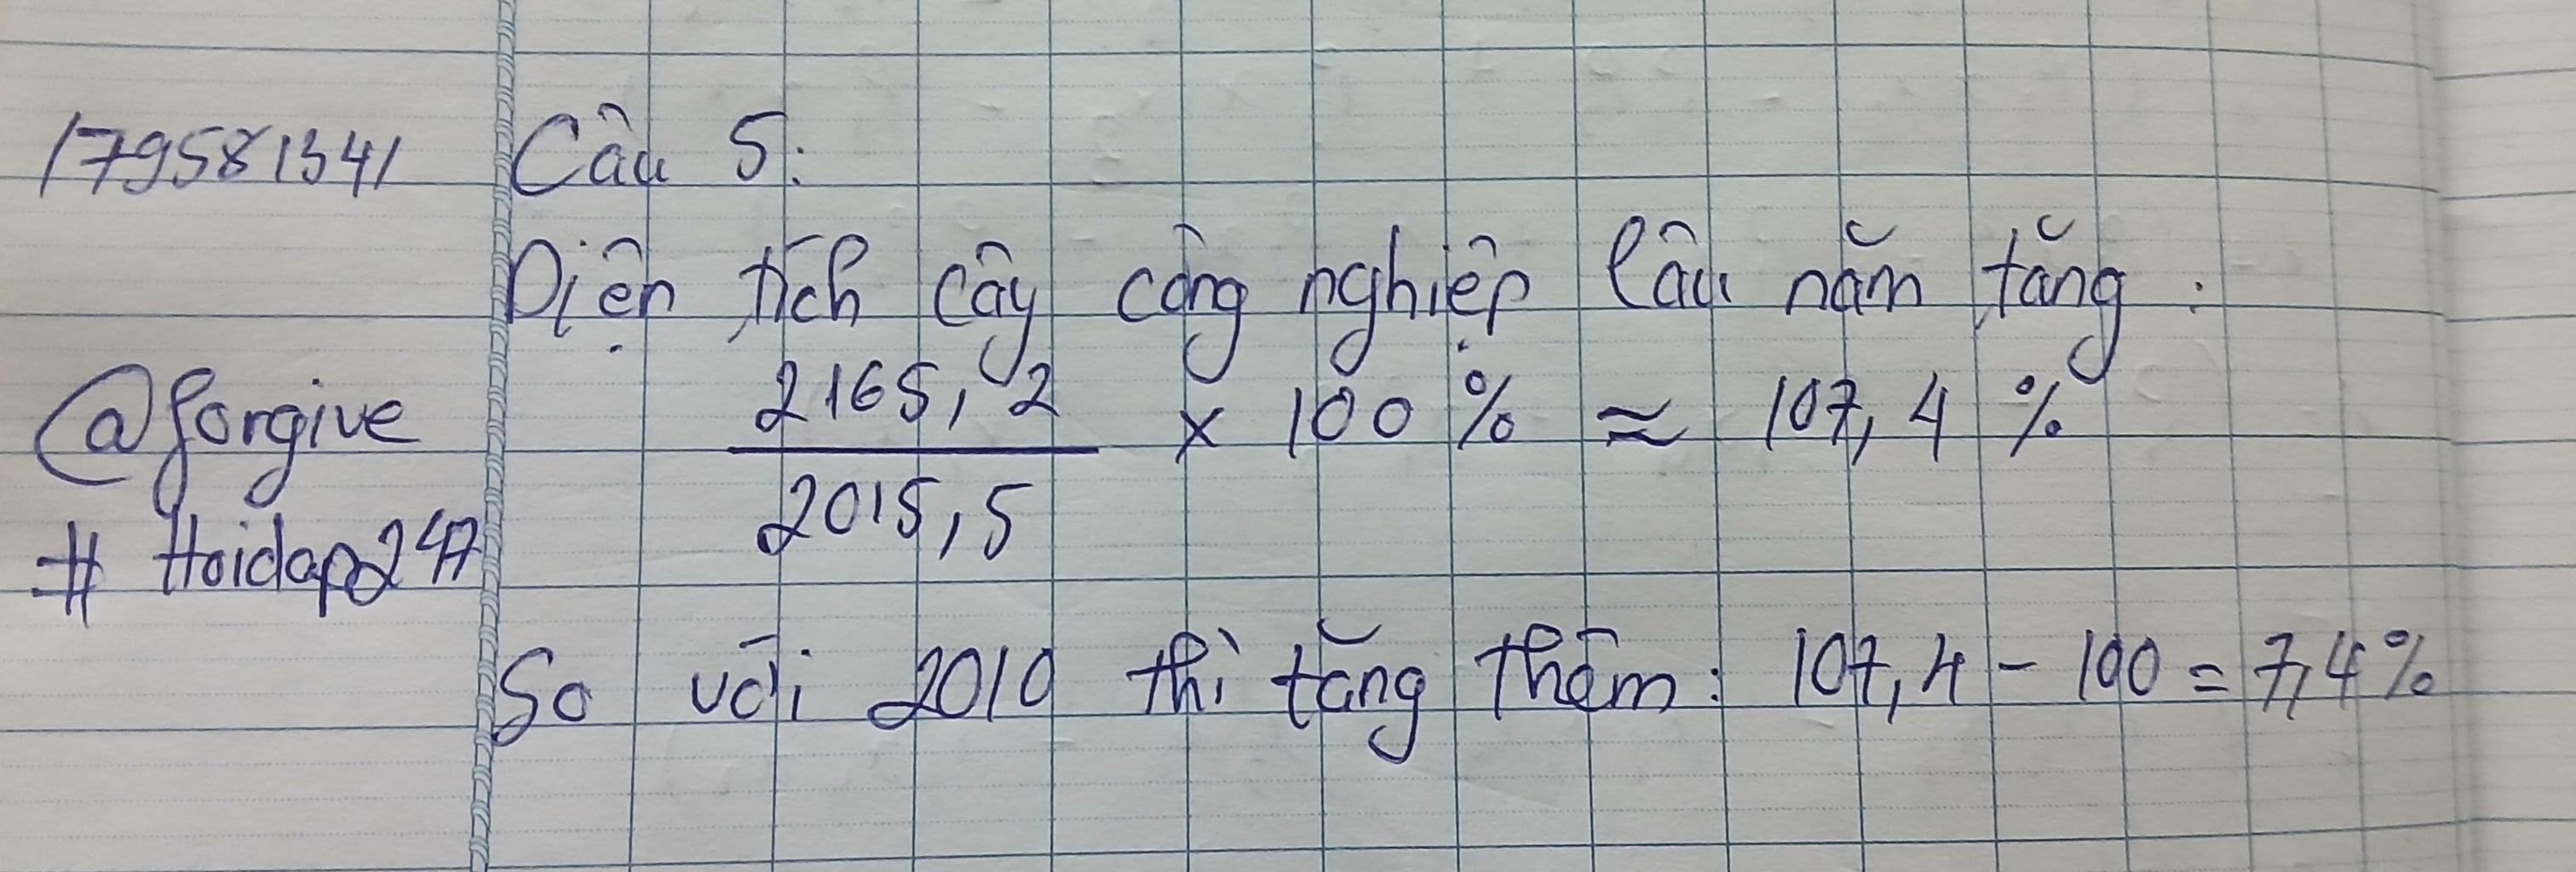 179581341
Câu 5:
Diện tích cây công nghiệp lâu năm tăng:
@forgive
2165,2 / 2015,5 × 100 % ≈ 107,4 %
# Hoidap247
So với 2010 thì tăng thêm: 107,4 - 100 = 7,4%